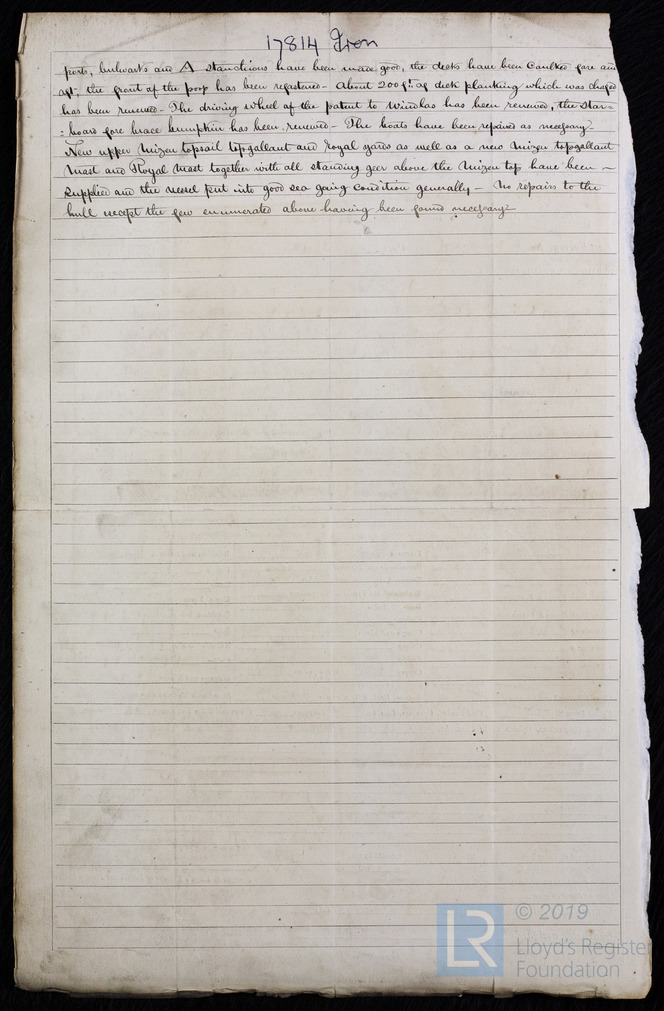 17814 Iron
ports, bulwarks and A stanchions have been made good, the decks have been Caulked fore and
aft, the front of the poop has been refastened - About 200 ft. of deck planking which was chafed
has been renewed - The driving wheel of the patent to Windlas has been renewed, the Star=
:board fore brace bumpkin has been renewed - The boats have been repaired as necessary -
New upper Mizen topsail topgallant and royal yards as well as a new Mizen topgallant
Mast and Royal Mast together with all standing geer above the Mizen top have been ~
supplied and the vessel put into good sea going condition generally - No repairs to the
hull except the few enumerated above having been found necessary
LR
© 2019
Lloyd's Register
Foundation